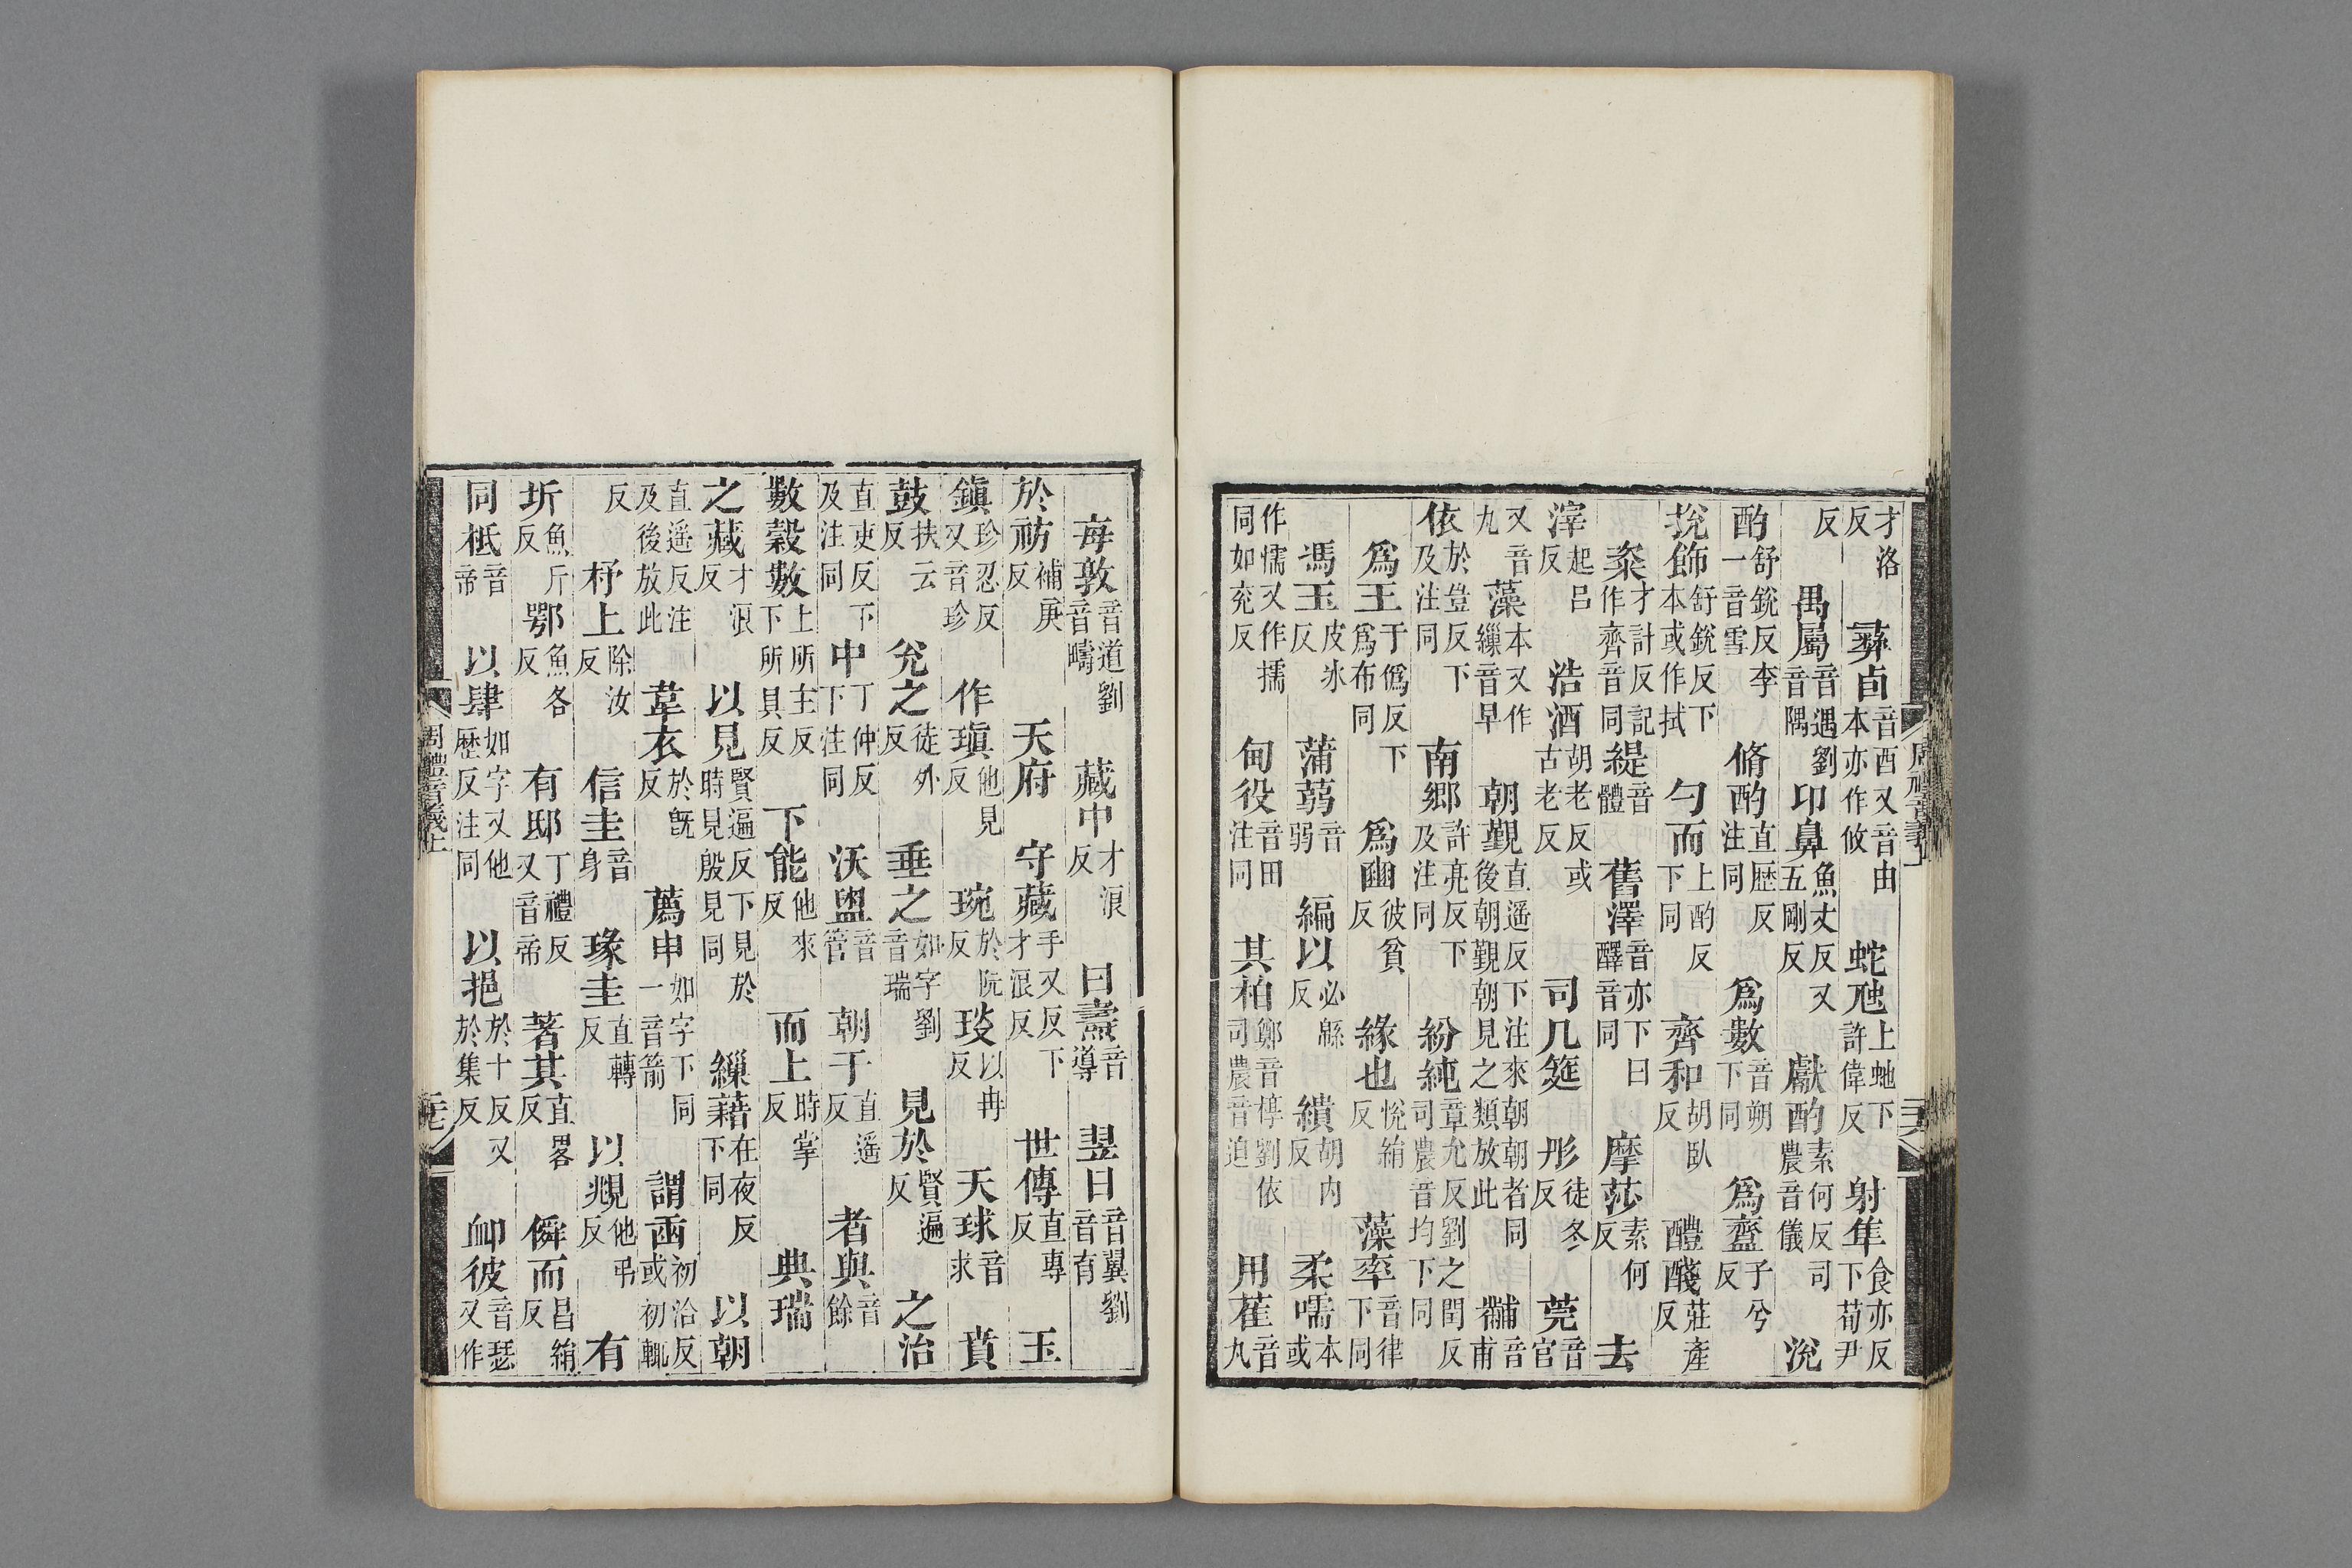 才洛反 彞卣音酉又音由本亦作攸 蛇虺上虵下許偉反 射隼食亦反下荀尹
反 禺屬音遇劉音隅 卬鼻魚丈反又五剛反 獻酌素何反司農音儀 涗
酌舒銳反李一音雪 脩酌直歴反注同 爲數音朔下同 爲齍子兮反
挩飾舒銳反下本或作拭 勺而上酌反下同 齊和胡臥反 醴醆莊產反
粢才計反記作齊音同 緹音體 舊澤音亦下曰醳音同 摩莎素何反 去
滓起呂反 浩酒胡老反或古老反 司几筵 彤徒冬反 莞音官
又音九 藻本又作繅音早 朝覲直遥反下注來朝朝者同後朝覲朝見之類放此 黼音甫
依於豈反下及注同 南郷許亮反下及注同 紛純章允反劉之閏反司農音均下同
爲王于僞反下爲布同 爲豳彼貧反 緣也悅絹反 藻率音律下同
馮玉皮氷反 蒲蒻音弱 編以必緜反 繢胡内反 柔嚅本或
作懦又作擩同如兖反 甸役音田注同 其柏鄭音椁劉依司農音迫 用萑音丸
周禮音義上
每敦音道劉音疇 藏中才浪反 曰燾音導 翌日音翼劉音育
於祊補庚反 天府 守藏手又反下才浪反 世傳直專反 玉
鎭珍忍反又音珍 作瑱他見反 琬於阮反 琰以冉反 天球音求 賁
鼓扶云反 兊之徒外反 垂之如字劉音瑞 見於賢遍反 之治
直吏反下及注同 中丁仲反下注同 沃盥音管 朝于直遥反 者與音餘
數穀數上所主反下所具反 下能他來反 而上時掌反 典瑞
之藏才浪反 以見賢遍反下見於時見殷見同 繅藉在夜反下同 以朝
直遥反注及後放此 韋衣於旣反 薦申如字下同一音箭 謂臿初洽反或初輒
反 杼上除汝反 信圭音身 瑑圭直轉反 以覜他弔反 有
圻魚斤反 鄂魚各反 有邸丁禮反又音帝 著其直畧反 僢而昌絹反
同祗音帝 以肆如字又他歴反注同 以挹於十反又於集反 卹彼音瑟又作
周禮音義上